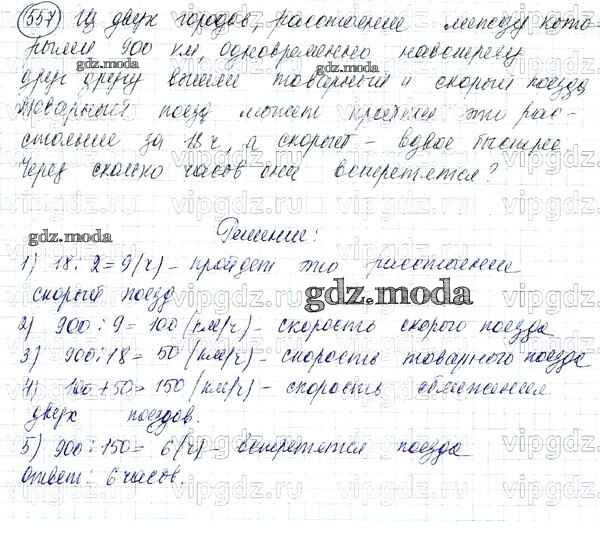 557) Из двух городов, расстояние между кото-
рыми 900 км, одновременно навстречу
gdz.moda
друг другу вышли товарный и скорый поезда
Товарный поезд может пройти это рас-
стояние за 18 ч, а скорый - вдвое быстрее.
Через сколько часов они встретятся?
gdz.moda
Решение:
1) 18 : 2 = 9 (ч) - пройдет это расстояние
скорый поезд
gdz.moda
2) 900 : 9 = 100 (км/ч) - скорость скорого поезда
3) 900 : 18 = 50 (км/ч) - скорость товарного поезда
4) 100 + 50 = 150 (км/ч) - скорость сближения
двух поездов.
5) 900 : 150 = 6 (ч) - встретятся поезда
Ответ: 6 часов.
vipgdz.ru